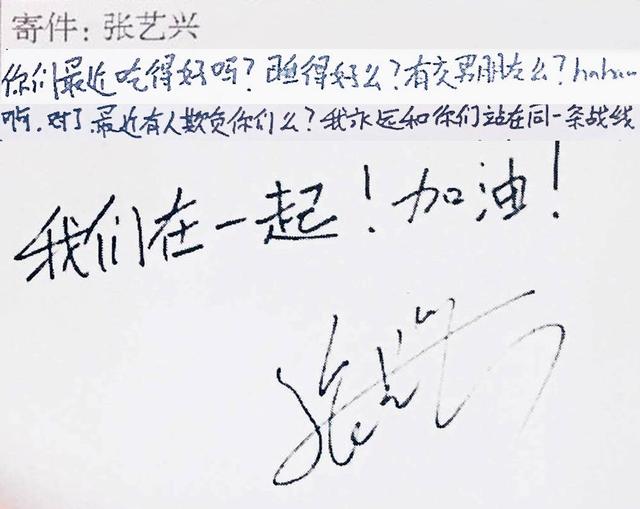 寄件：张艺兴
你们最近吃得好吗？睡得好么？有交男朋友么？haha...
啊，对了最近有人欺负你们么？我永远和你们站在同一条战线
我们在一起！加油！
张艺兴